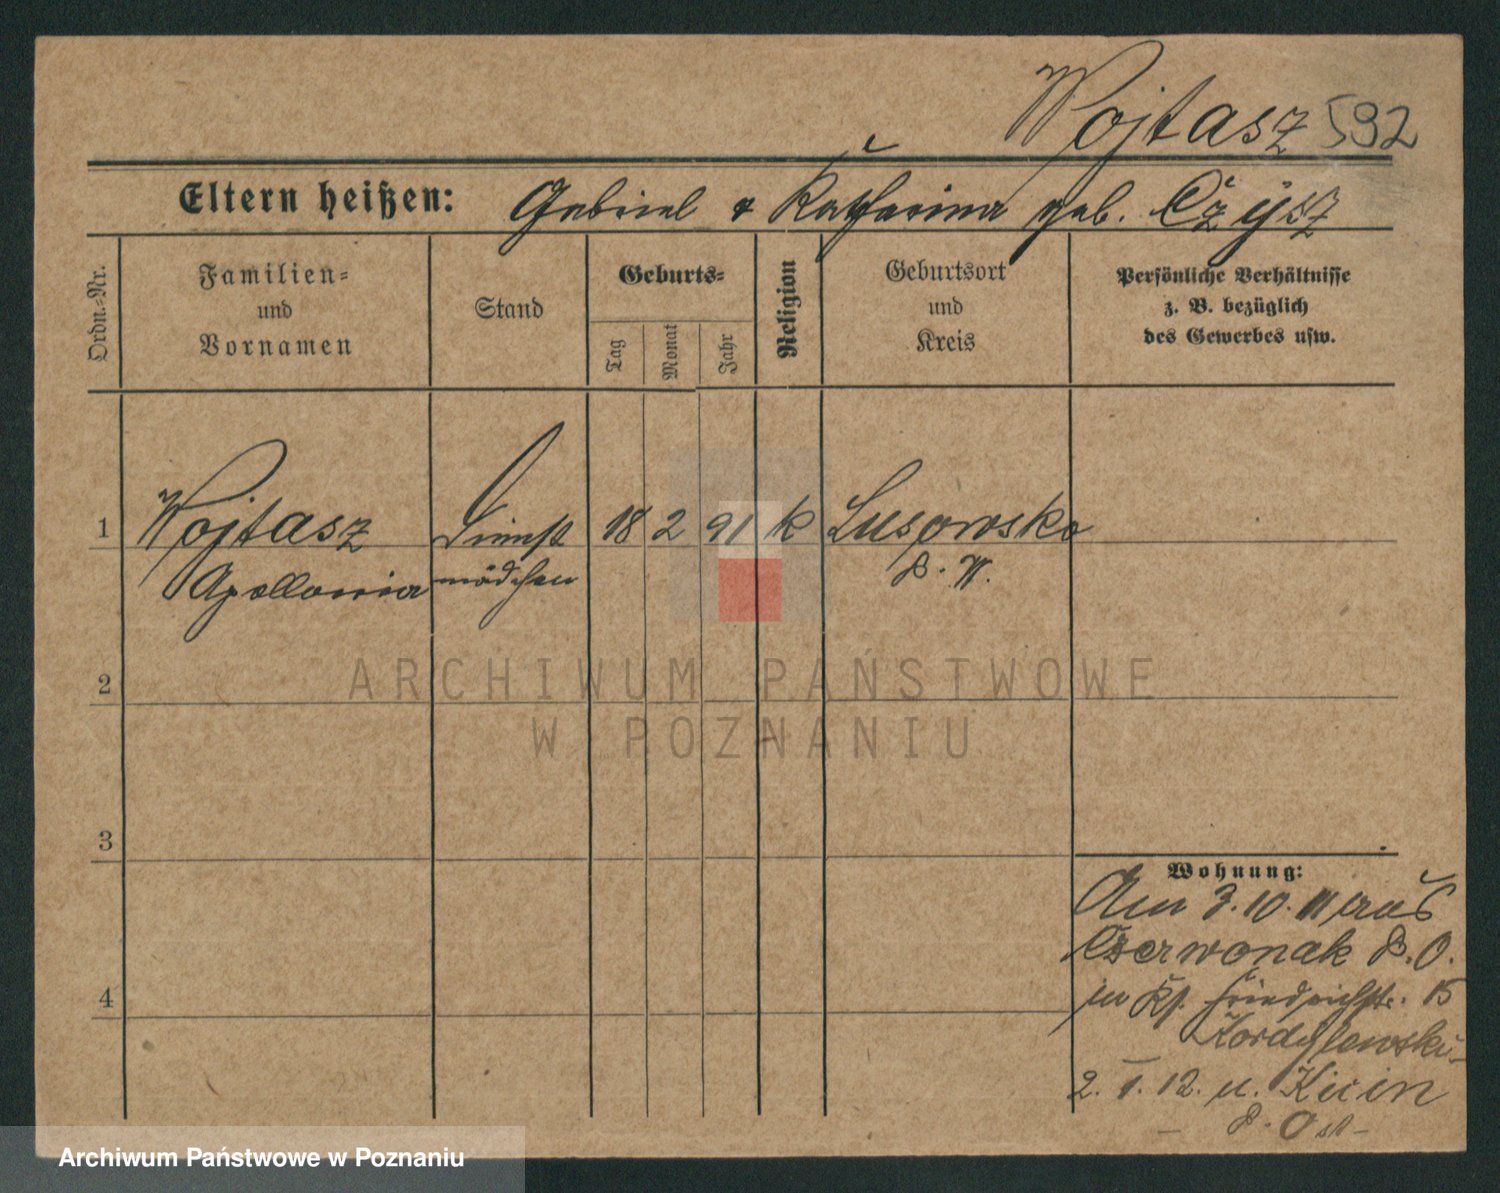 Wojtasz 592
Eltern heißen: Gabriel & Katharina geb. Czysz
Ordn.-Nr.
Familien-
und
Vornamen
Stand
Geburts-
Tag
Monat
Jahr
Religion
Geburtsort
und
Kreis
Persönliche Verhältnisse
z. B. bezüglich
des Gewerbes usw.
1 Wojtasz Dienst 18 2 91 k Lusowsko
Apollonia mädchen P. W.
2
ARCHIWUM PAŃSTWOWE
W POZNANIU
3
Wohnung:
Am 3.10.11 aus
Czerwonak P. O.
4
in Kj. Friedrichstr. 15
Kordylewski
2. 1. 12. n. Kicin
P. Ost
Archiwum Państwowe w Poznaniu